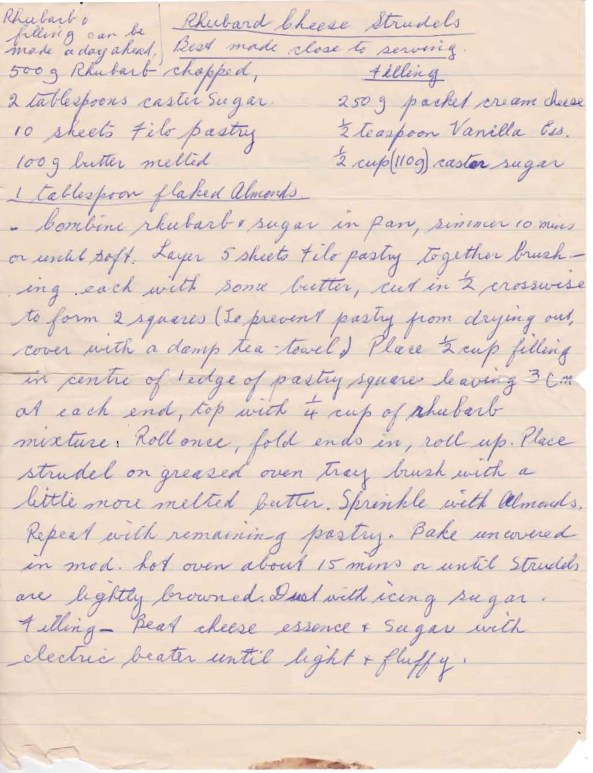 Rhubarb &
filling can be
made a day ahead.
Rhubard Cheese Strudels
Best made close to serving.
500g Rhubarb chopped,
2 tablespoons caster Sugar.
10 sheets Filo pastry
100g butter melted
1 tablespoon flaked Almonds
Filling
250g packet cream cheese
½ teaspoon Vanilla Ess.
½ cup (110g) caster sugar
- Combine rhubarb & sugar in pan, simmer 10 mins
or until soft. Layer 5 sheets Filo pastry together brush-
ing each with some butter, cut in ½ crosswise
to form 2 squares (To prevent pastry from drying out,
cover with a damp tea-towel) Place ½ cup filling
in centre of 1 edge of pastry square leaving 3 Cm
at each end, top with ¼ cup of rhubarb
mixture. Roll once, fold ends in, roll up. Place
strudel on greased oven tray brush with a
little more melted butter. Sprinkle with Almonds.
Repeat with remaining pastry. Bake uncovered
in mod. hot oven about 15 mins or until Strudels
are lightly browned. Dust with icing sugar.
Filling - Beat cheese essence & Sugar with
electric beater until light & fluffy.